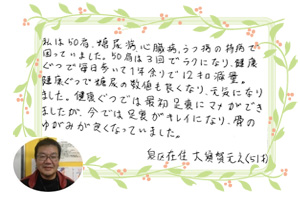 私は50肩、糖尿病、心臓病、うつ病の持病で
困っていました。50肩は3回でラクになり、健康
ぐつで毎日歩いて1年余りで12キロ減量。
健康ぐつで糖尿の数値も良くなり、元気になり
ました。健康ぐつでは最初足裏にマメができ
ましたが、今では足裏がキレイになり、骨の
ゆがみが良くなっていました。
泉区在住 大須賀元え(51才)